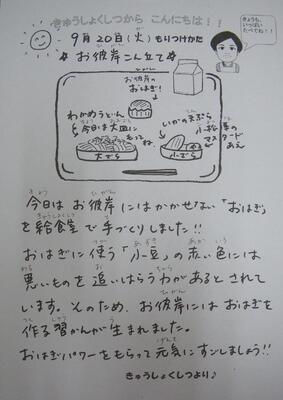 きゅうしょくしつから こんにちは！！
きょうも、
いっぱい
たべてね！！
9月20日(火) もりつけかた
☆お彼岸こん立て☆
お彼岸の
おはぎ！
わかめうどん
今日は大皿に
もってね。
いかの天ぷら
小松菜の
マスタード
あえ
大ざら
小ざら
今日は お彼岸にはかかせない「おはぎ」
を給食室で手づくりしました!!
おはぎに使う「小豆」の赤い色には
悪いものを追いはらう力があるとされて
います。そのため、お彼岸にはおはぎを
作る習かんが生まれました。
おはぎパワーをもらって元気にすごしましょう!!
きゅうしょくしつより♪